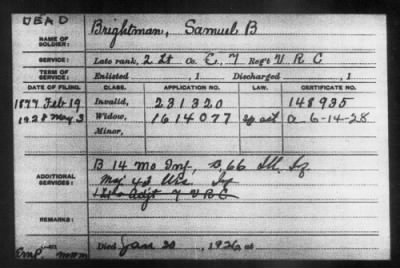 DEAD
NAME OF SOLDIER: Brightman, Samuel B
SERVICE: Late rank, 2 Lt Co. E, 7 Reg't V R C
TERM OF SERVICE: Enlisted , 1 Discharged , 1
DATE OF FILING. CLASS. APPLICATION NO. LAW. CERTIFICATE NO.
1877 Feb 19 Invalid, 231320 148935
1928 May 3 Widow, 1614077 act a 6-14-28
Minor,
ADDITIONAL SERVICES: B 14 Mo Inf, B, 66 Ill. Inf
Maj 43 Wis. Inf
Adjt 7 V R C
REMARKS:
Died Jan 20 , 1926, at